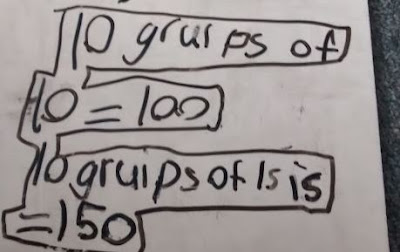 10 gruips of
10 = 100
10 gruips of 15 is
= 150